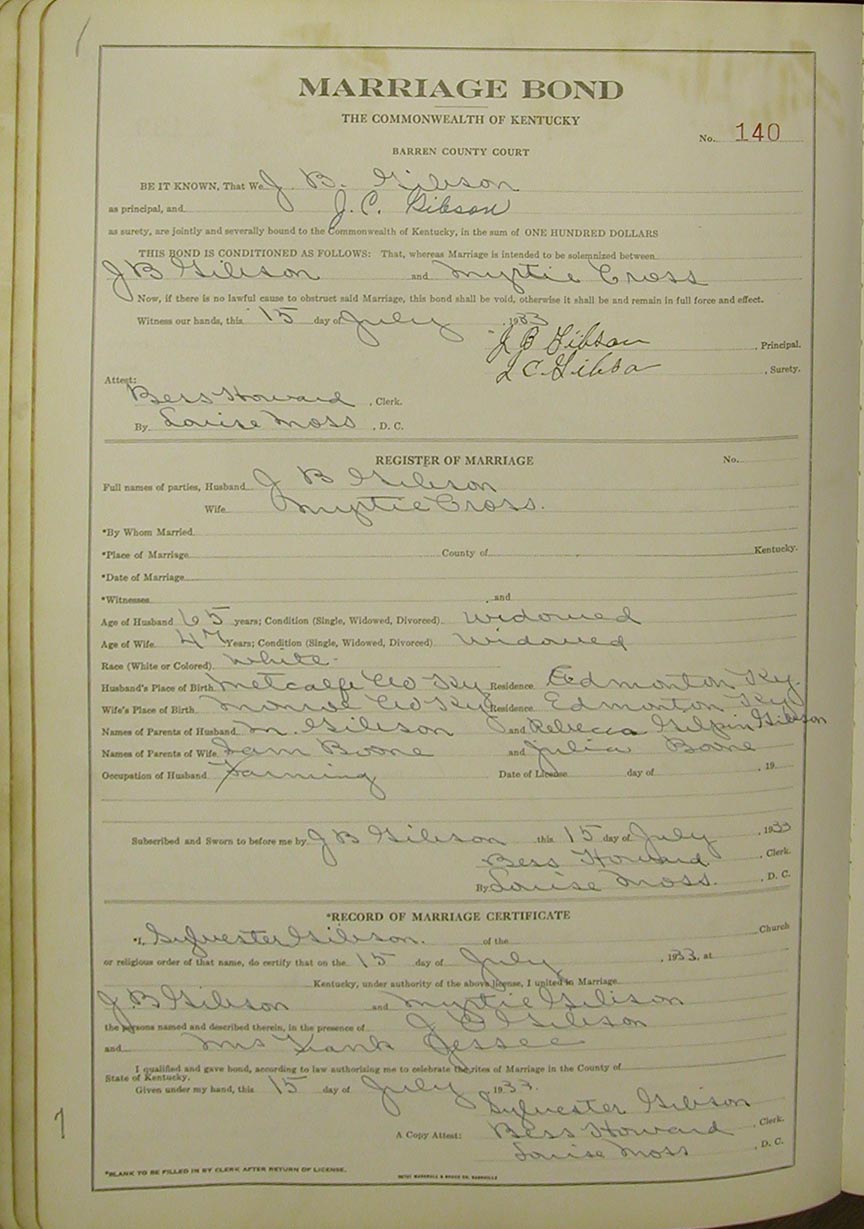 MARRIAGE BOND
THE COMMONWEALTH OF KENTUCKY
No. 140
BARREN COUNTY COURT
BE IT KNOWN, That We J. B. Gibson
as principal, and J. C. Gibson
as surety, are jointly and severally bound to the Commonwealth of Kentucky, in the sum of ONE HUNDRED DOLLARS
THIS BOND IS CONDITIONED AS FOLLOWS: That, whereas Marriage is intended to be solemnized between
J B Gibson and Myrtie Cross
Now, if there is no lawful cause to obstruct said Marriage, this bond shall be void, otherwise it shall be and remain in full force and effect.
Witness our hands, this 15 day of July, 1933
J B Gibson, Principal.
J C Gibso, Surety.
Attest:
Bess Howard, Clerk.
By Louise Moss, D. C.
REGISTER OF MARRIAGE No.
Full names of parties, Husband J B Gibson
Wife Myrtie Cross.
*By Whom Married
*Place of Marriage County of Kentucky.
*Date of Marriage
*Witnesses and
Age of Husband 65 years; Condition (Single, Widowed, Divorced). widowed
Age of Wife 47 Years; Condition (Single, Widowed, Divorced) widowed
Race (White or Colored) white
Husband's Place of Birth Metcalfe Co Ky Residence Edmonton Ky.
Wife's Place of Birth Monroe Co Ky Residence Edmonton Ky
Names of Parents of Husband M. Gibson and Rebecca Gilpin Gibson
Names of Parents of Wife Sam Boone and Julia Boone
Occupation of Husband Farming Date of License day of , 19
Subscribed and Sworn to before me by J B Gibson this 15 day of July, 1933
Bess Howard, Clerk.
By Louise Moss., D. C.
*RECORD OF MARRIAGE CERTIFICATE
*I, Sylvester Gibson. of the Church
or religious order of that name, do certify that on the 15 day of July, 1933, at
Kentucky, under authority of the above license, I united in Marriage
J. B Gibson and Myrtie Gibson
the persons named and described therein, in the presence of J C Gibson
and Mrs Frank Jessee
I qualified and gave bond, according to law authorizing me to celebrate the rites of Marriage in the County of
State of Kentucky.
Given under my hand, this 15 day of July, 1933.
Sylvester Gibson
A Copy Attest: Bess Howard, Clerk.
Louise Moss, D. C.
*BLANK TO BE FILLED IN BY CLERK AFTER RETURN OF LICENSE.